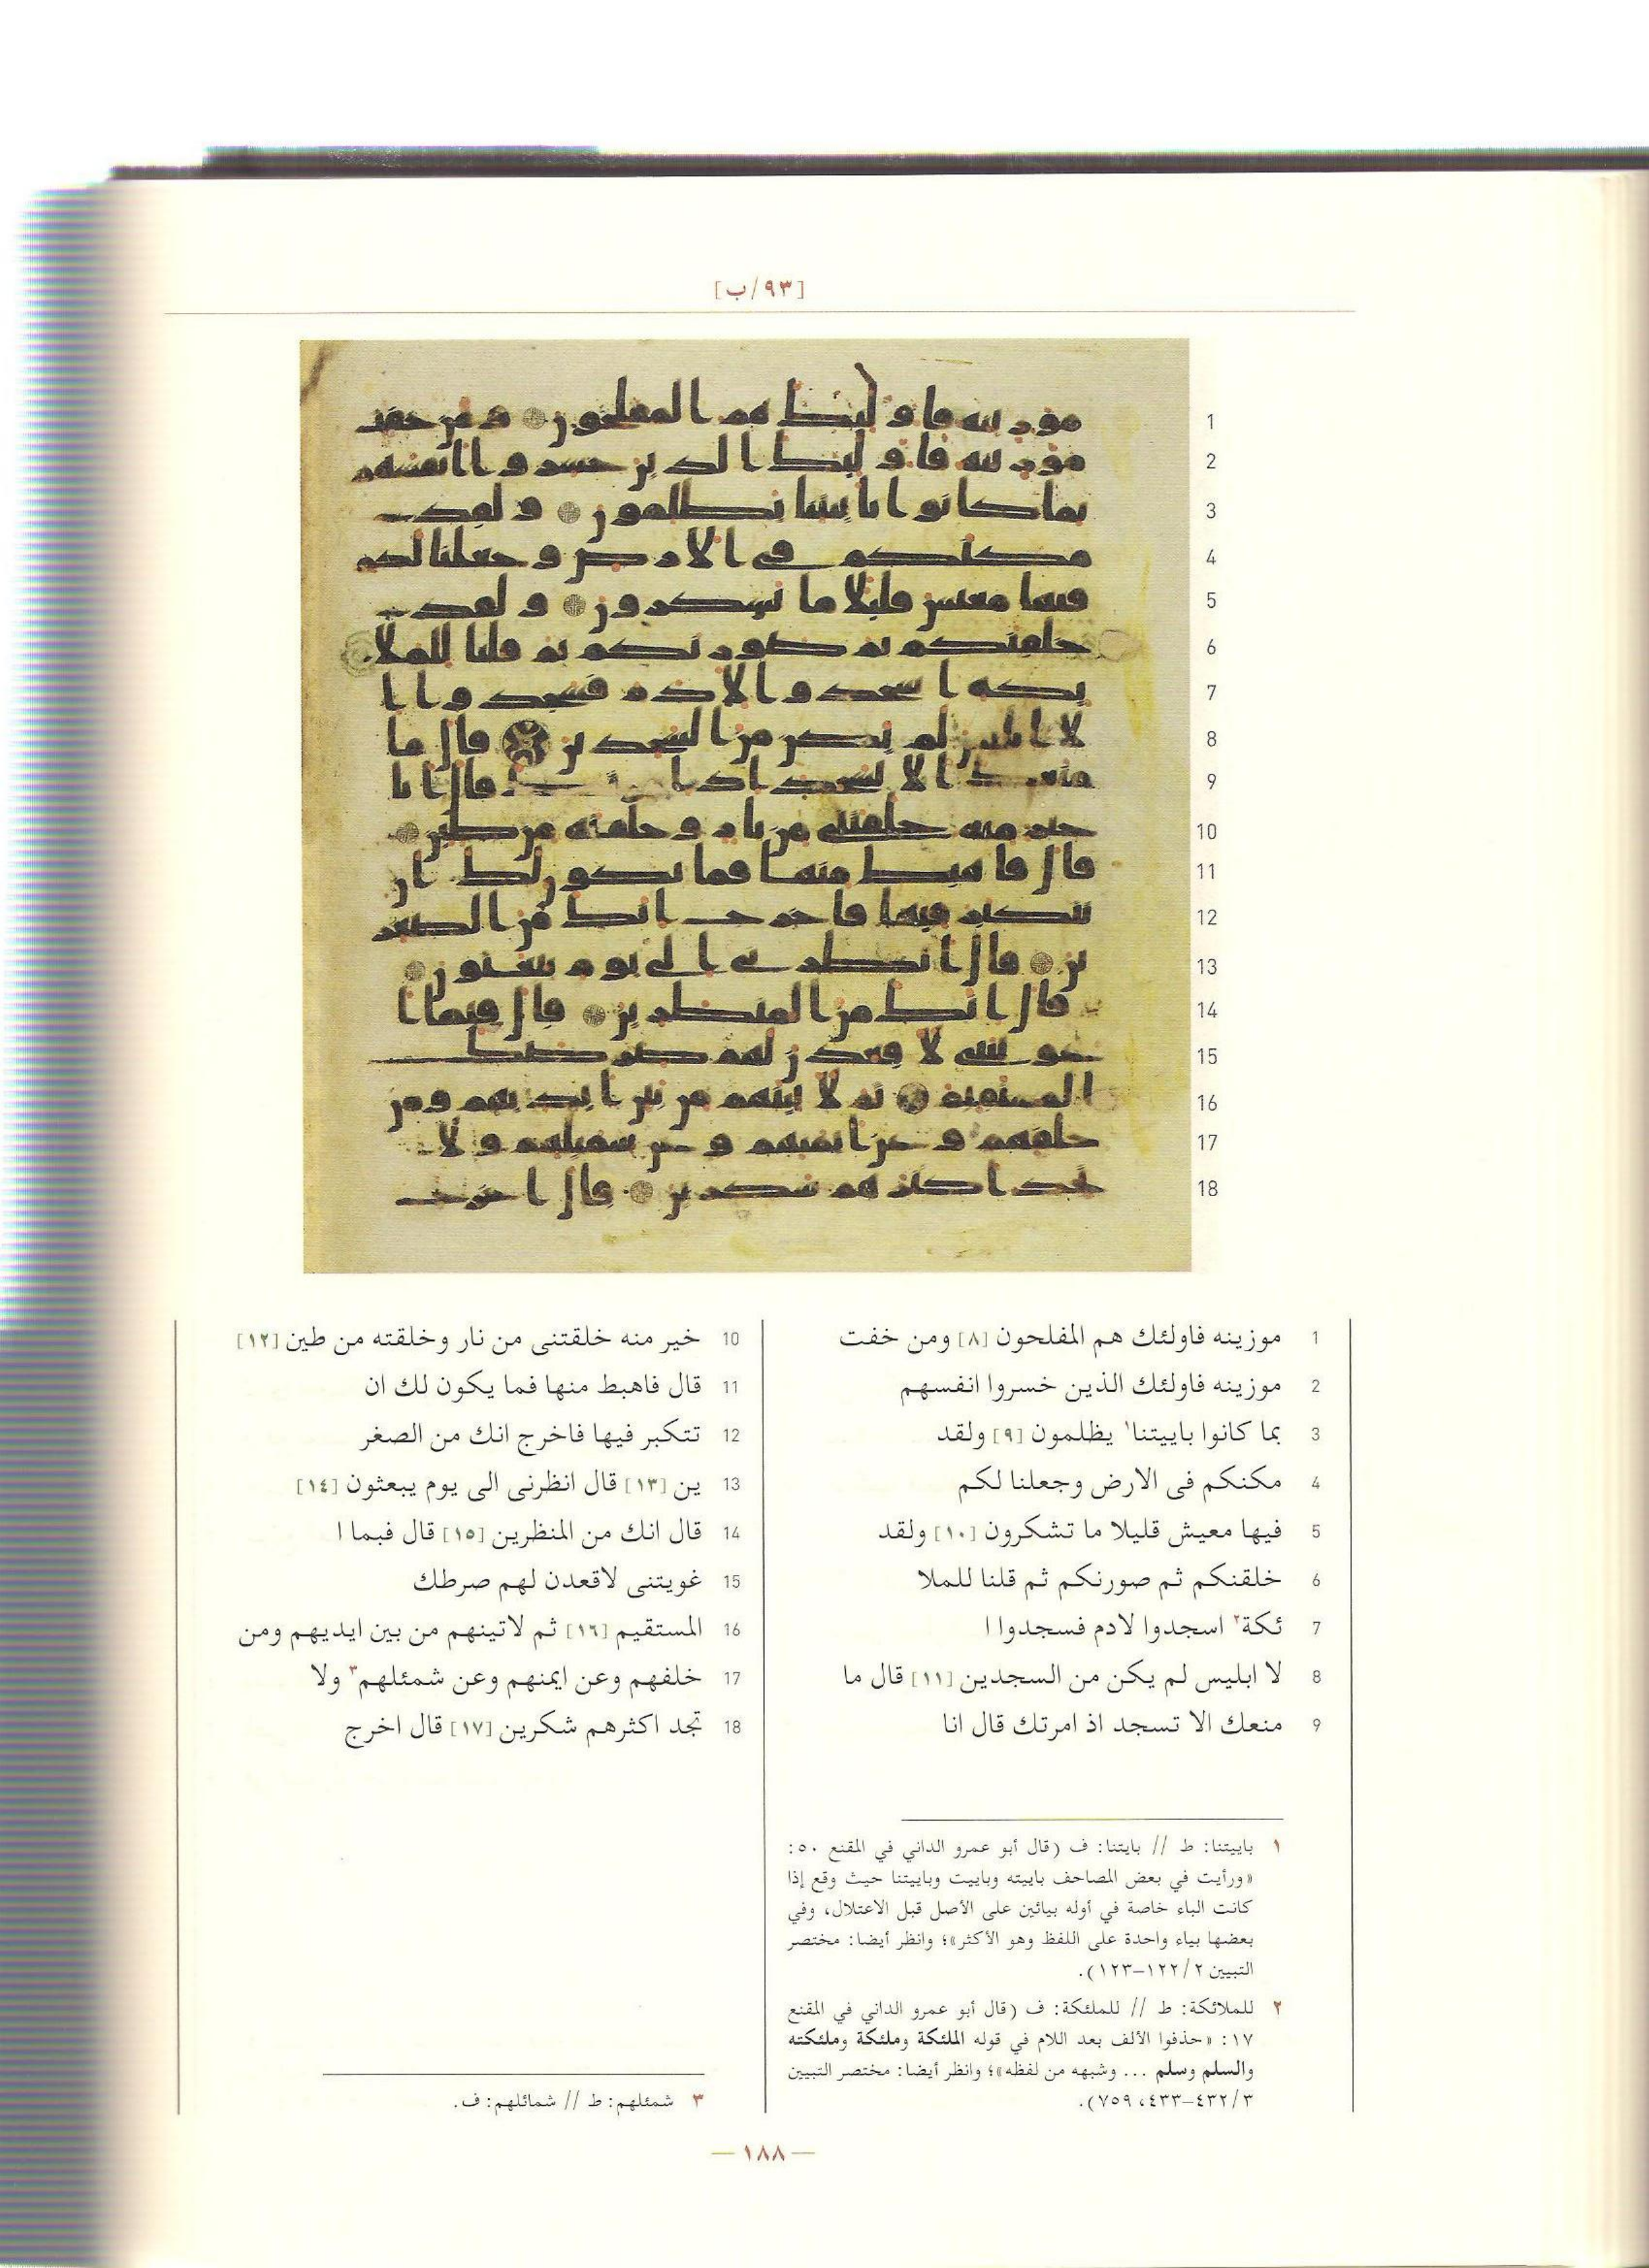 [٩٣/ب]
1 موزينه فاولئك هم المفلحون [٨] ومن خفت
2 موزينه فاولئك الذين خسروا انفسهم
3 بما كانوا باييتنا١ يظلمون [٩] ولقد
4 مكنكم فى الارض وجعلنا لكم
5 فيها معيش قليلا ما تشكرون [١٠] ولقد
6 خلقنكم ثم صورنكم ثم قلنا للملا
7 ئكة٢ اسجدوا لادم فسجدوا ا
8 لا ابليس لم يكن من السجدين [١١] قال ما
9 منعك الا تسجد اذ امرتك قال انا
10 خير منه خلقتنى من نار وخلقته من طين [١٢]
11 قال فاهبط منها فما يكون لك ان
12 تتكبر فيها فاخرج انك من الصغر
13 ين [١٣] قال انظرنى الى يوم يبعثون [١٤]
14 قال انك من المنظرين [١٥] قال فبما ا
15 غويتنى لاقعدن لهم صرطك
16 المستقيم [١٦] ثم لاتينهم من بين ايديهم ومن
17 خلفهم وعن ايمنهم وعن شمئلهم٣ ولا
18 تجد اكثرهم شكرين [١٧] قال اخرج
١ باييتنا: ط // بايتنا: ف (قال أبو عمرو الداني في المقنع ٥٠:
«ورأيت في بعض المصاحف باييته وباييت وباييتنا حيث وقع إذا
كانت الباء خاصة في أوله بيائين على الأصل قبل الاعتلال، وفي
بعضها بياء واحدة على اللفظ وهو الأكثر»؛ وانظر أيضا: مختصر
التبيين ٢/ ١٢٢–١٢٣).
٢ للملائكة: ط // للملئكة: ف (قال أبو عمرو الداني في المقنع
١٧: «حذفوا الألف بعد اللام في قوله الملئكة وملئكة وملئكته
والسلم وسلم ... وشبهه من لفظه»؛ وانظر أيضا: مختصر التبيين
٣/ ٤٣٢–٤٣٣، ٧٥٩).
٣ شمئلهم: ط // شمائلهم: ف.
— ١٨٨ —